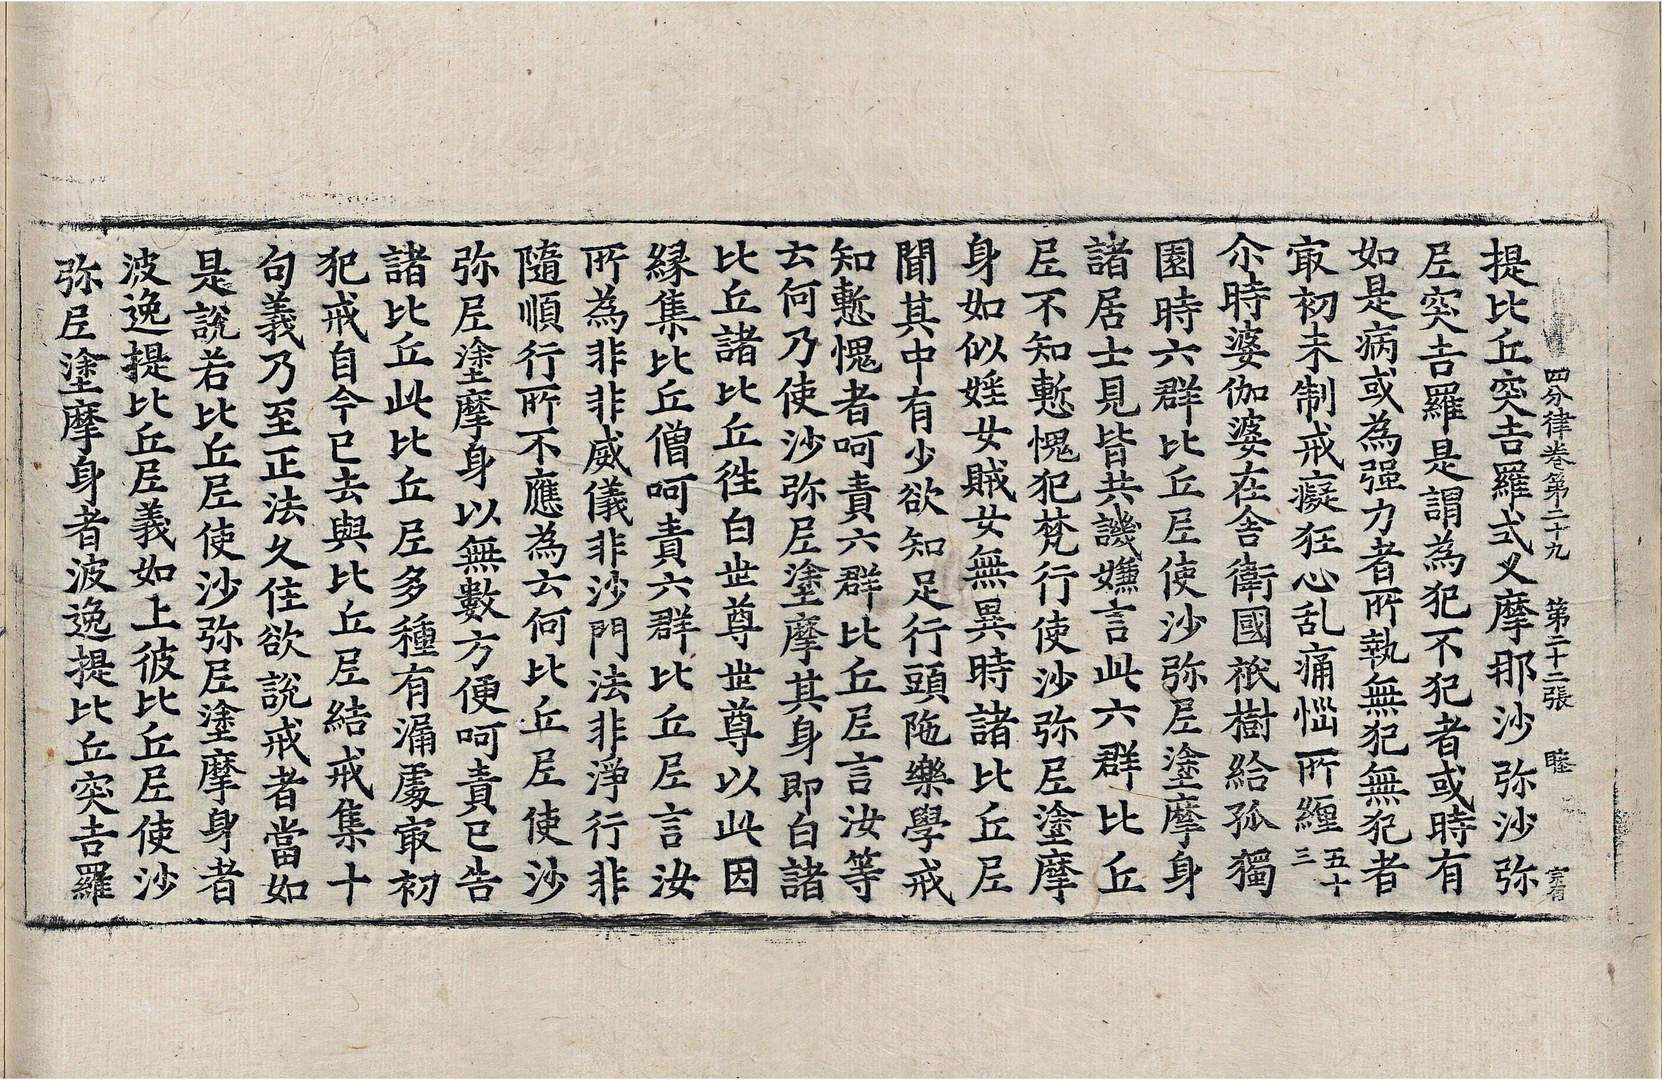 四分律卷第二十九 第二十二張 睦
提比丘突吉羅式叉摩那沙弥沙弥
尼突吉羅是謂為犯不犯者或時有
如是病或為强力者所執無犯無犯者
㝡初未制戒癡狂心乱痛惱所纏五十三
尒時婆伽婆在舍衛國祇樹給孤獨
園時六群比丘尼使沙弥尼塗摩身
諸居士見皆共譏嫌言此六群比丘
尼不知慙愧犯梵行使沙弥尼塗摩
身如似婬女賊女無異時諸比丘尼
聞其中有少欲知足行頭陁樂學戒
知慙愧者呵責六群比丘尼言汝等
云何乃使沙弥尼塗摩其身即白諸
比丘諸比丘徃白世尊世尊以此因
緣集比丘僧呵責六群比丘尼言汝
所為非非威儀非沙門法非淨行非
隨順行所不應為云何比丘尼使沙
弥尼塗摩身以無數方便呵責已告
諸比丘此比丘尼多種有漏處㝡初
犯戒自今已去與比丘尼結戒集十
句義乃至正法久住欲說戒者當如
是說若比丘尼使沙弥尼塗摩身者
波逸提比丘尼義如上彼比丘尼使沙
弥尼塗摩身者波逸提比丘突吉羅